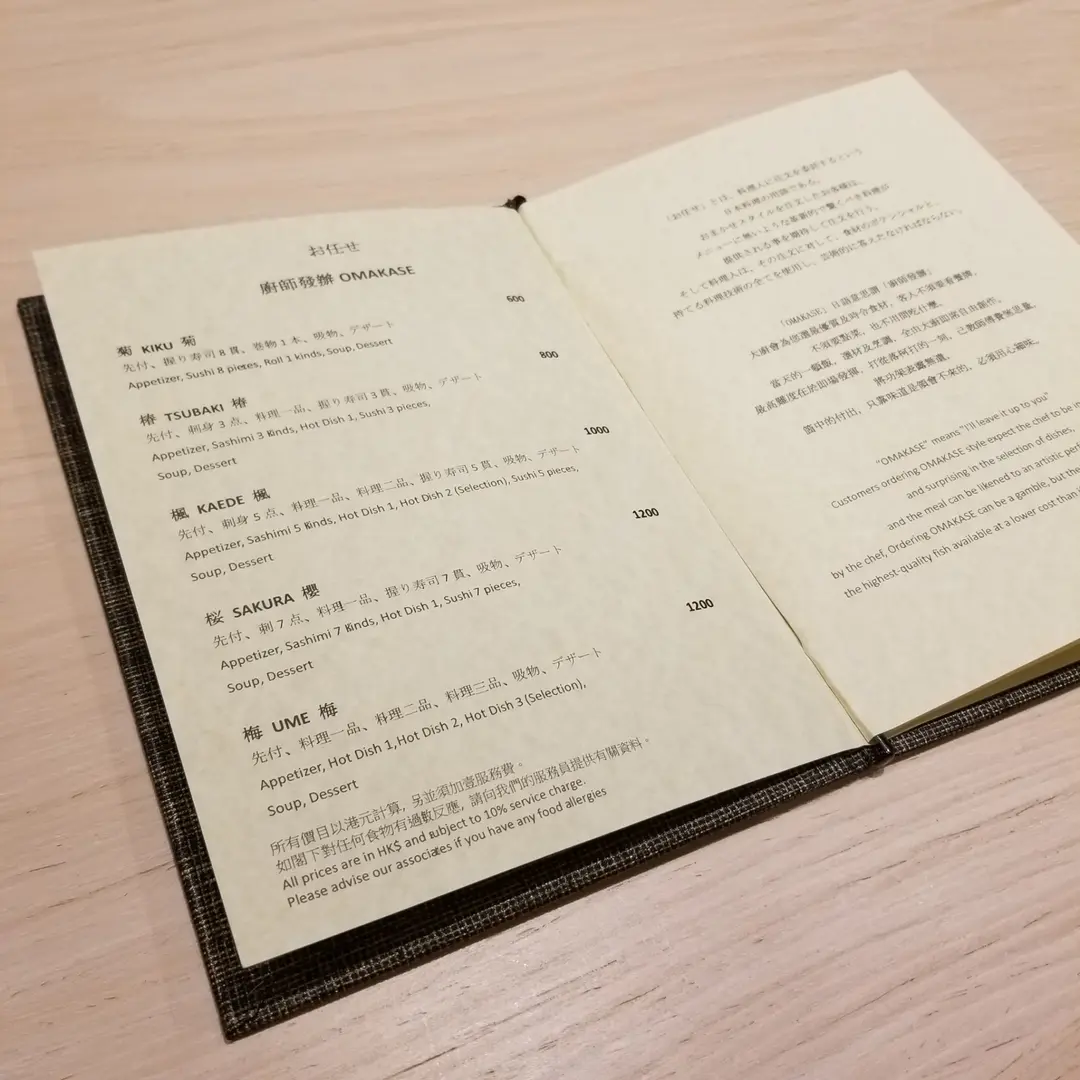 お任せ
廚師發辦 OMAKASE
菊 KIKU 菊 600
先付、握り寿司8貫、巻物1本、吸物、デザート
Appetizer, Sushi 8 pieces, Roll 1 kinds, Soup, Dessert
椿 TSUBAKI 椿 800
先付、刺身3点、料理一品、握り寿司3貫、吸物、デザート
Appetizer, Sashimi 3 Kinds, Hot Dish 1, Sushi 3 pieces,
Soup, Dessert
楓 KAEDE 楓 1000
先付、刺身5点、料理一品、料理二品、握り寿司5貫、吸物、デザート
Appetizer, Sashimi 5 Kinds, Hot Dish 1, Hot Dish 2 (Selection), Sushi 5 pieces,
Soup, Dessert
桜 SAKURA 櫻 1200
先付、刺7点、料理一品、握り寿司7貫、吸物、デザート
Appetizer, Sashimi 7 Kinds, Hot Dish 1, Sushi 7 pieces,
Soup, Dessert
梅 UME 梅 1200
先付、料理一品、料理二品、料理三品、吸物、デザート
Appetizer, Hot Dish 1, Hot Dish 2, Hot Dish 3 (Selection),
Soup, Dessert
所有價目以港元計算, 另並須加壹服務費。
如閣下對任何食物有過敏反應, 請向我們的服務員提供有關資料。
All prices are in HK$ and subject to 10% service charge.
Please advise our associates if you have any food allergies
「お任せ」とは、料理人に注文を委託するという
日本料理の用語である。
おまかせスタイルを注文したお客様は、
メニューに無いような革新的で驚くべき料理が
提供される事を期待して注文を行う。
そして料理人は、その注文に対して、食材のポテンシャルと、
持てる料理技術の全てを使用し、芸術的に答えたなければならない。
「OMAKASE」日語意思謂「廚師發辦」
大廚會為您選最優質及時令食材，客人不須要看餐牌，
不須要點菜，也不用問吃什麼。
當天的一輪飯，選材及烹調，全由大廚即席自由創作。
最高難度在於即場發揮，
將功架表露無遺。
箇中的付出，只靠味道是領會不來的，必須用心細味。
"OMAKASE" means "I'll leave it up to you"
Customers ordering OMAKASE style expect the chef to be in
and surprising in the selection of dishes,
and the meal can be likened to an artistic perf
by the chef, Ordering OMAKASE can be a gamble, but the
the highest-quality fish available at a lower cost than